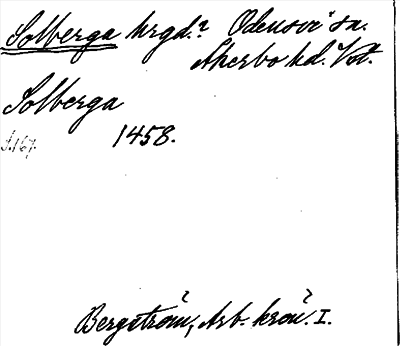 Solberga hrgd.? Odensvi sn.
Åkerbo hd. Vstl.
Solberga
1458.
S.167.
Bergström, Arb. krön. I.